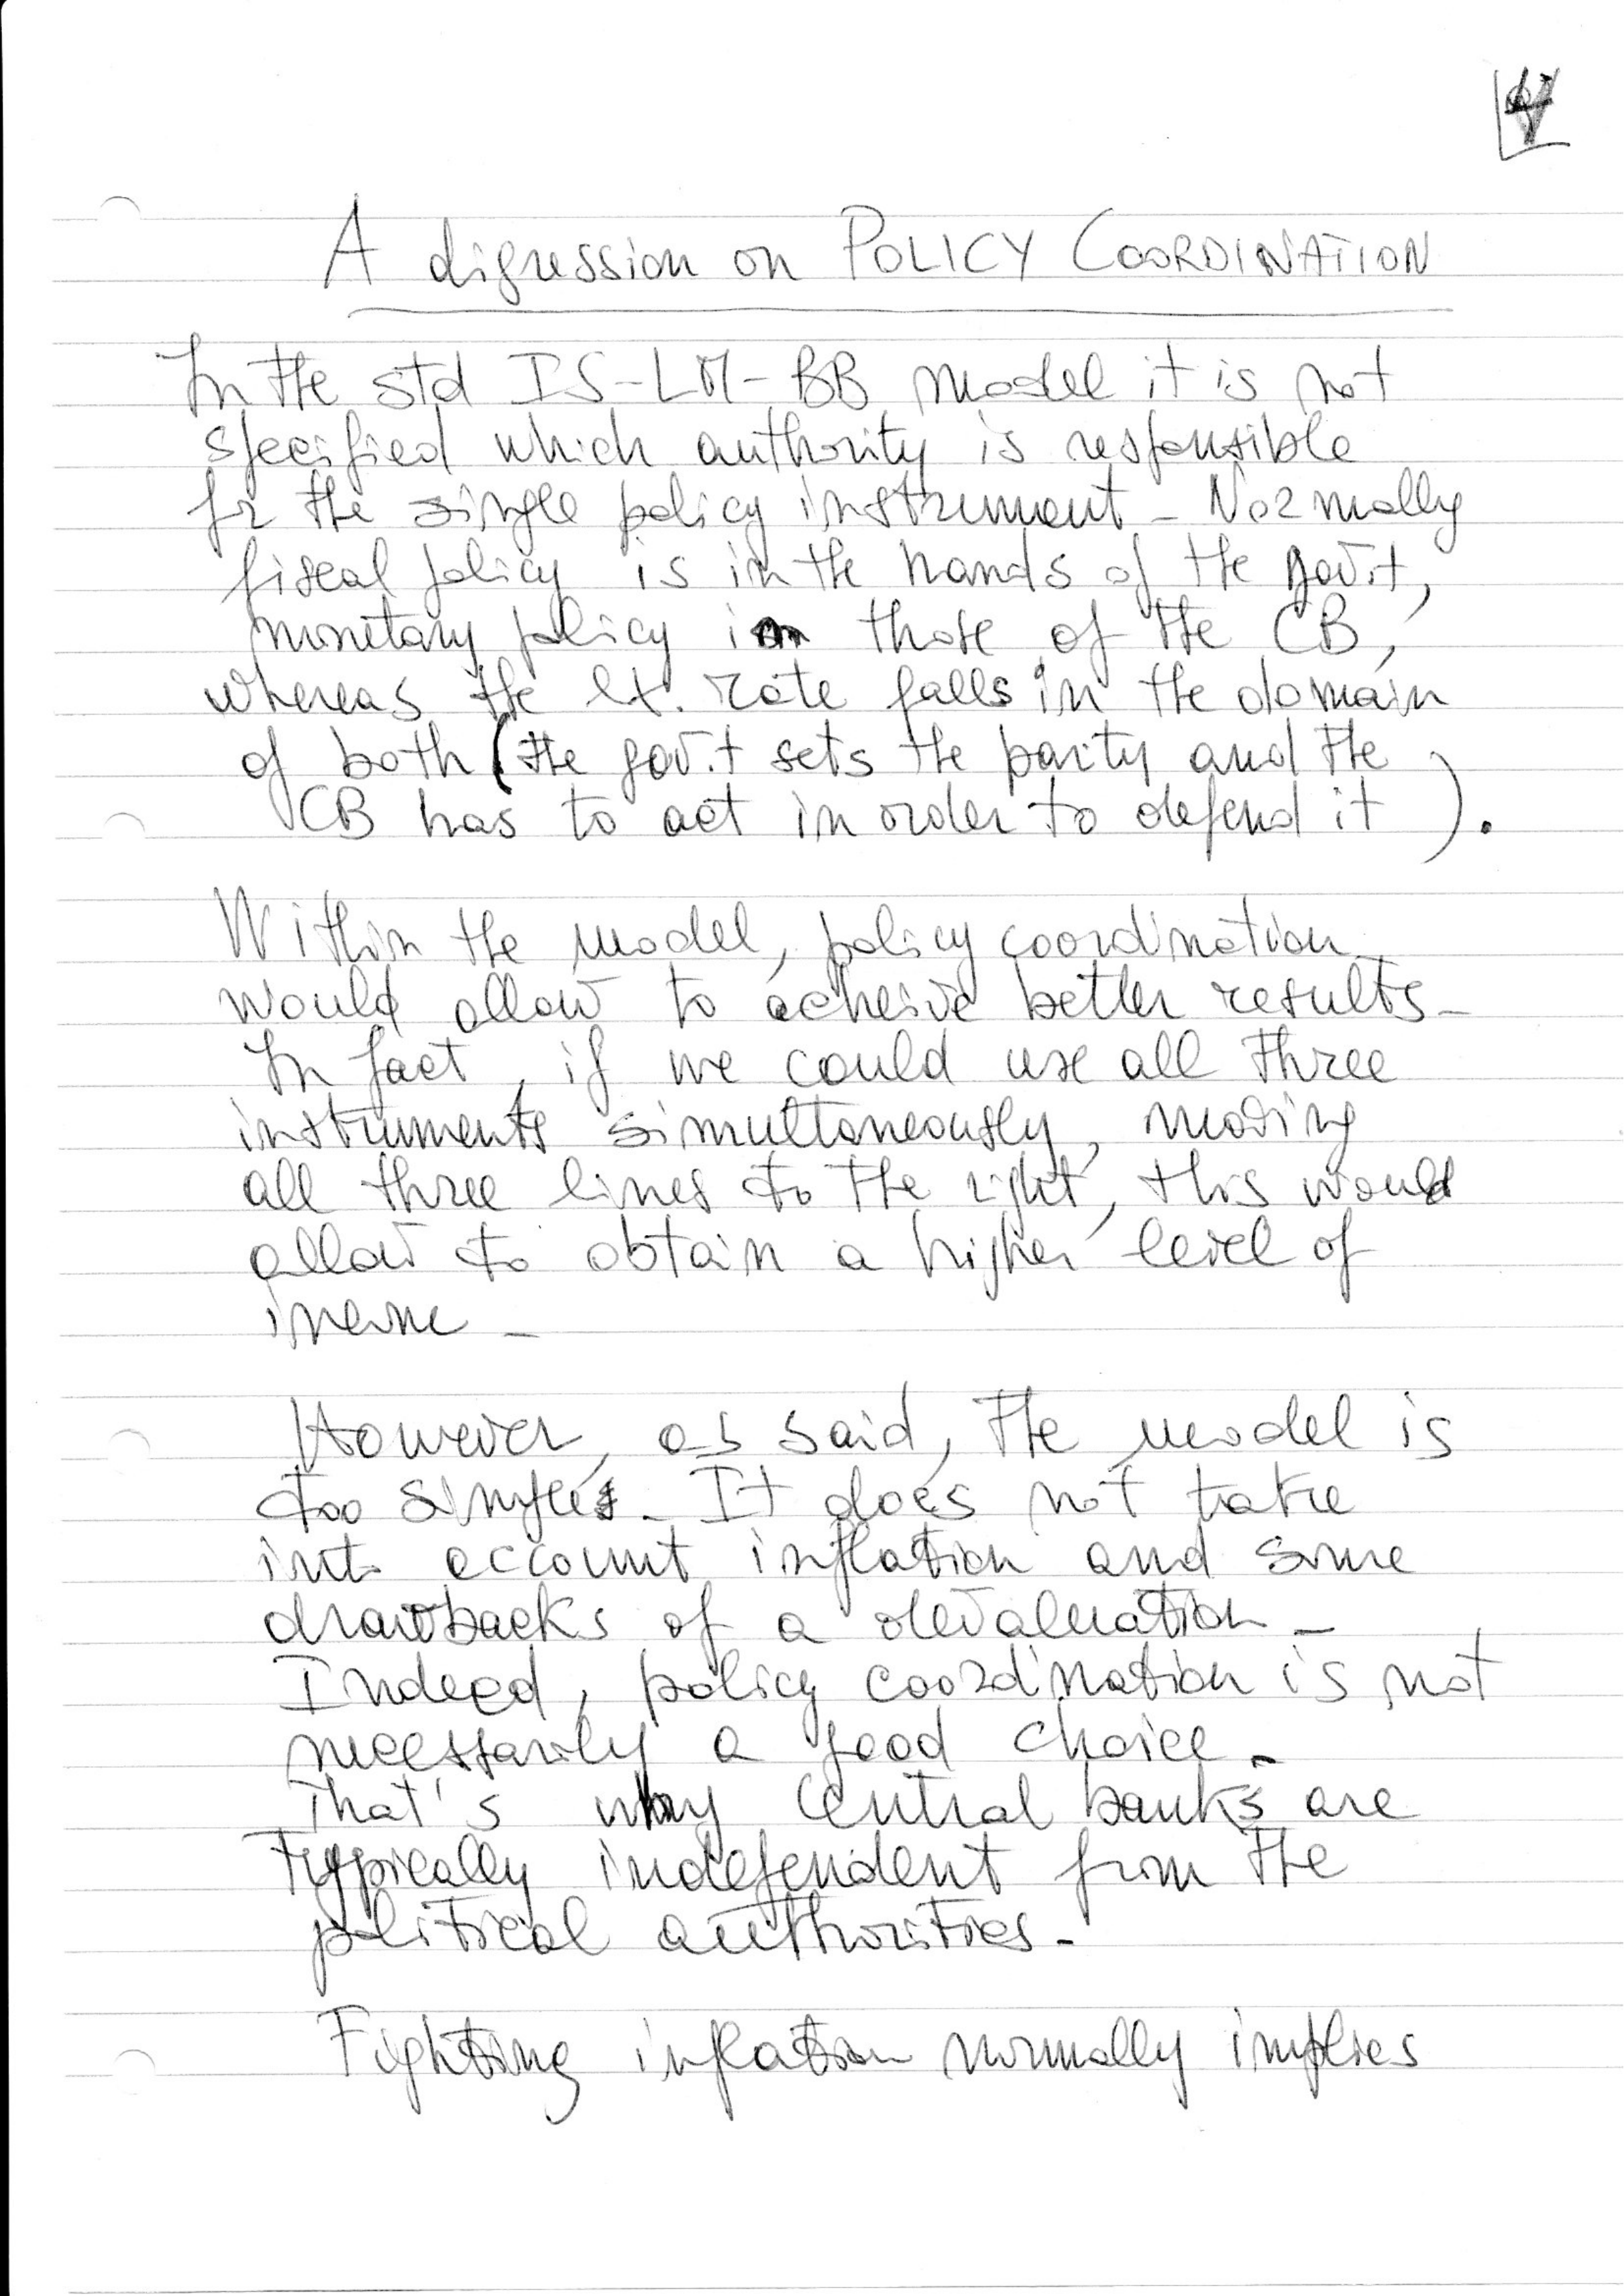 A digression on POLICY COORDINATION
In the std IS-LM-BB model it is not
specified which authority is responsible
for the single policy instrument - Normally
fiscal policy is in the hands of the gov.t,
monetary policy in those of the CB,
whereas the ex. rate falls in the domain
of both (the gov.t sets the parity and the
CB has to act in order to defend it).
Within the model, policy coordination
would allow to acheive better results -
In fact, if we could use all three
instruments simultaneously, moving
all three lines to the right, this would
allow to obtain a higher level of
income -
However, as said, the model is
too simple. It does not take
into account inflation and some
drawbacks of a devaluation -
Indeed, policy coordination is not
necessarily a good choice -
That's why Central banks are
typically independent from the
political authorities -
Fighting inflation normally implies